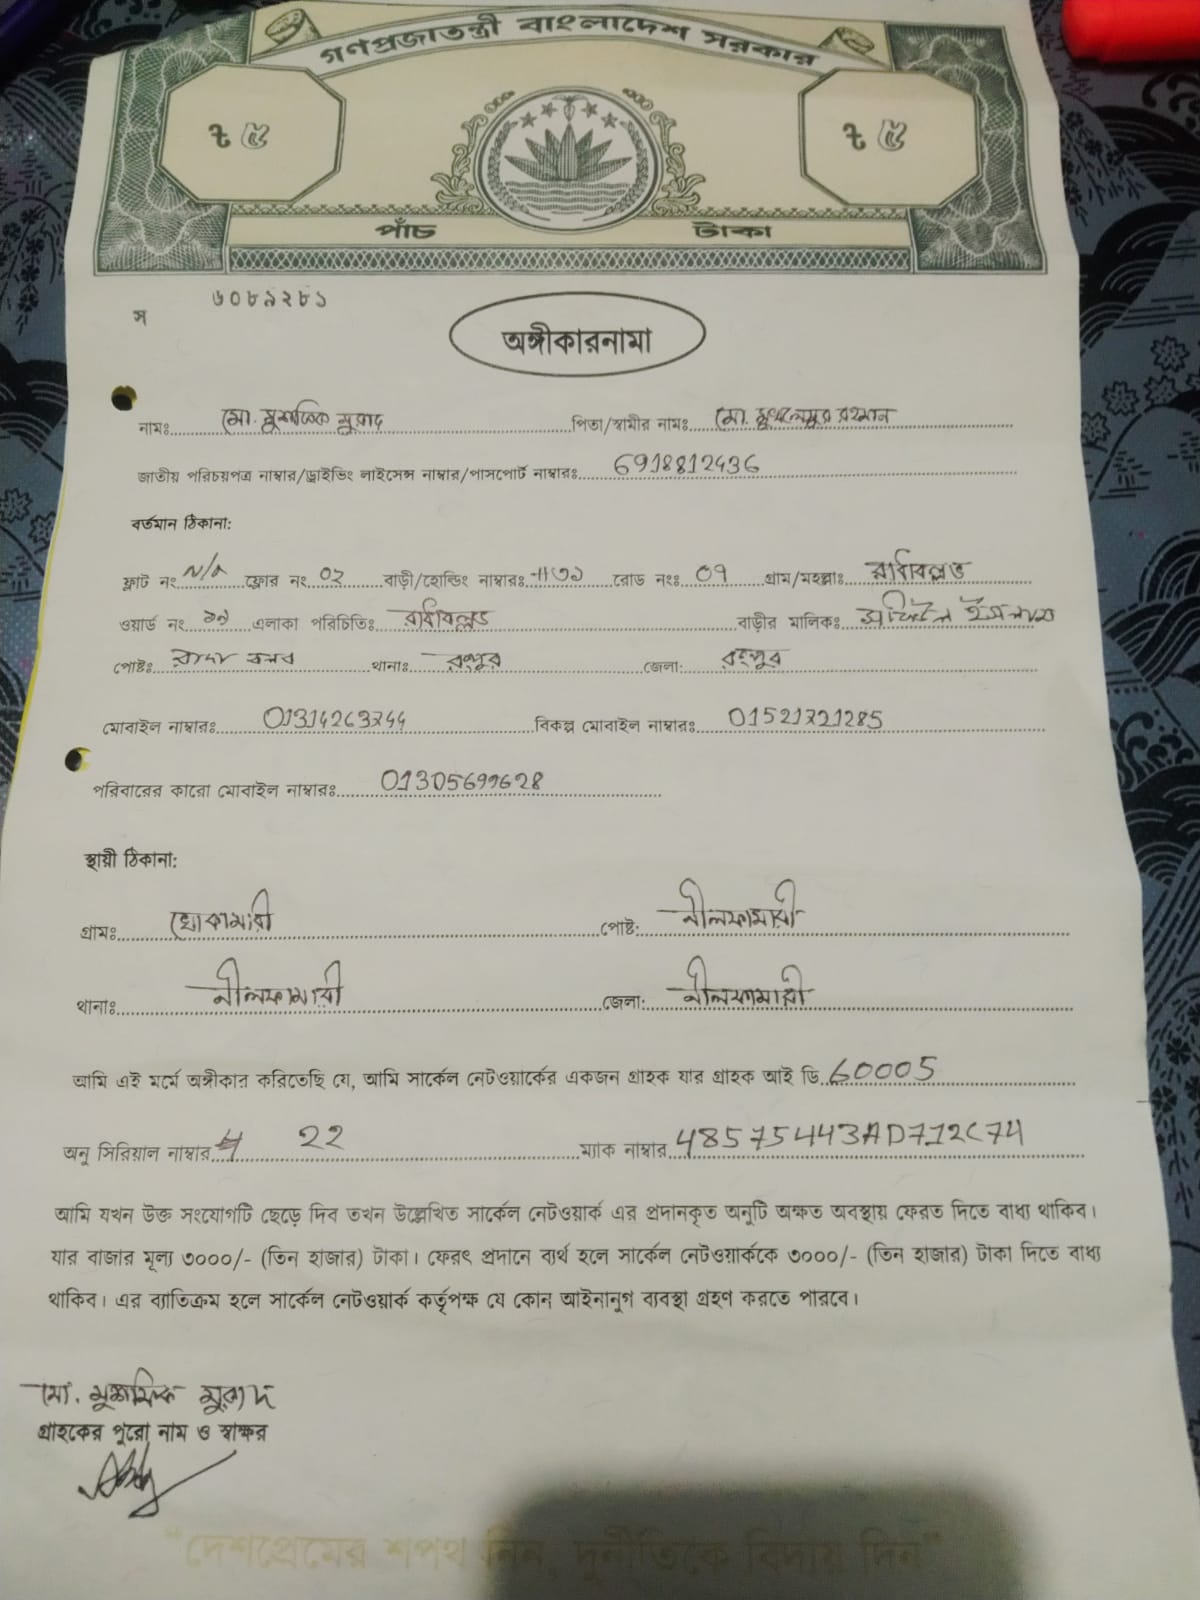 গণপ্রজাতন্ত্রী বাংলাদেশ সরকার
৳ ৫ ৳ ৫
পাঁচ টাকা
স ৬০৮৯২৮১
অঙ্গীকারনামা
নামঃ মো. মুশফিক মুরাদ পিতা/স্বামীর নামঃ মো. রহমান
জাতীয় পরিচয়পত্র নাম্বার/ড্রাইভিং লাইসেন্স নাম্বার/পাসপোর্ট নাম্বারঃ 6918812436
বর্তমান ঠিকানা:
ফ্লাট নং N/A ফ্লোর নং ০২ বাড়ী/হোল্ডিং নাম্বারঃ রোড নংঃ ০৭ গ্রাম/মহল্লাঃ রাধাবল্লভ
ওয়ার্ড নং এলাকা পরিচিতিঃ রাধাবল্লভ বাড়ীর মালিকঃ ইসলাম
পোষ্টঃ থানাঃ রংপুর জেলা: রংপুর
মোবাইল নাম্বারঃ বিকল্প মোবাইল নাম্বারঃ
পরিবারের কারো মোবাইল নাম্বারঃ
স্থায়ী ঠিকানা:
গ্রামঃ পোষ্ট: নীলফামারী
থানাঃ নীলফামারী জেলা: নীলফামারী
আমি এই মর্মে অঙ্গীকার করিতেছি যে, আমি সার্কেল নেটওয়ার্কের একজন গ্রাহক যার গ্রাহক আই ডি 60005
অনু সিরিয়াল নাম্বার 22 ম্যাক নাম্বার 48575443AD712C74
আমি যখন উক্ত সংযোগটি ছেড়ে দিব তখন উল্লেখিত সার্কেল নেটওয়ার্ক এর প্রদানকৃত অনুটি অক্ষত অবস্থায় ফেরত দিতে বাধ্য থাকিব।
যার বাজার মূল্য ৩০০০/- (তিন হাজার) টাকা। ফেরৎ প্রদানে ব্যর্থ হলে সার্কেল নেটওয়ার্ককে ৩০০০/- (তিন হাজার) টাকা দিতে বাধ্য
থাকিব। এর ব্যাতিক্রম হলে সার্কেল নেটওয়ার্ক কর্তৃপক্ষ যে কোন আইনানুগ ব্যবস্থা গ্রহণ করতে পারবে।
মো. মুশফিক মুরাদ
গ্রাহকের পুরো নাম ও স্বাক্ষর
"দেশপ্রেমের শপথ নিন, দুর্নীতিকে বিদায় দিন"